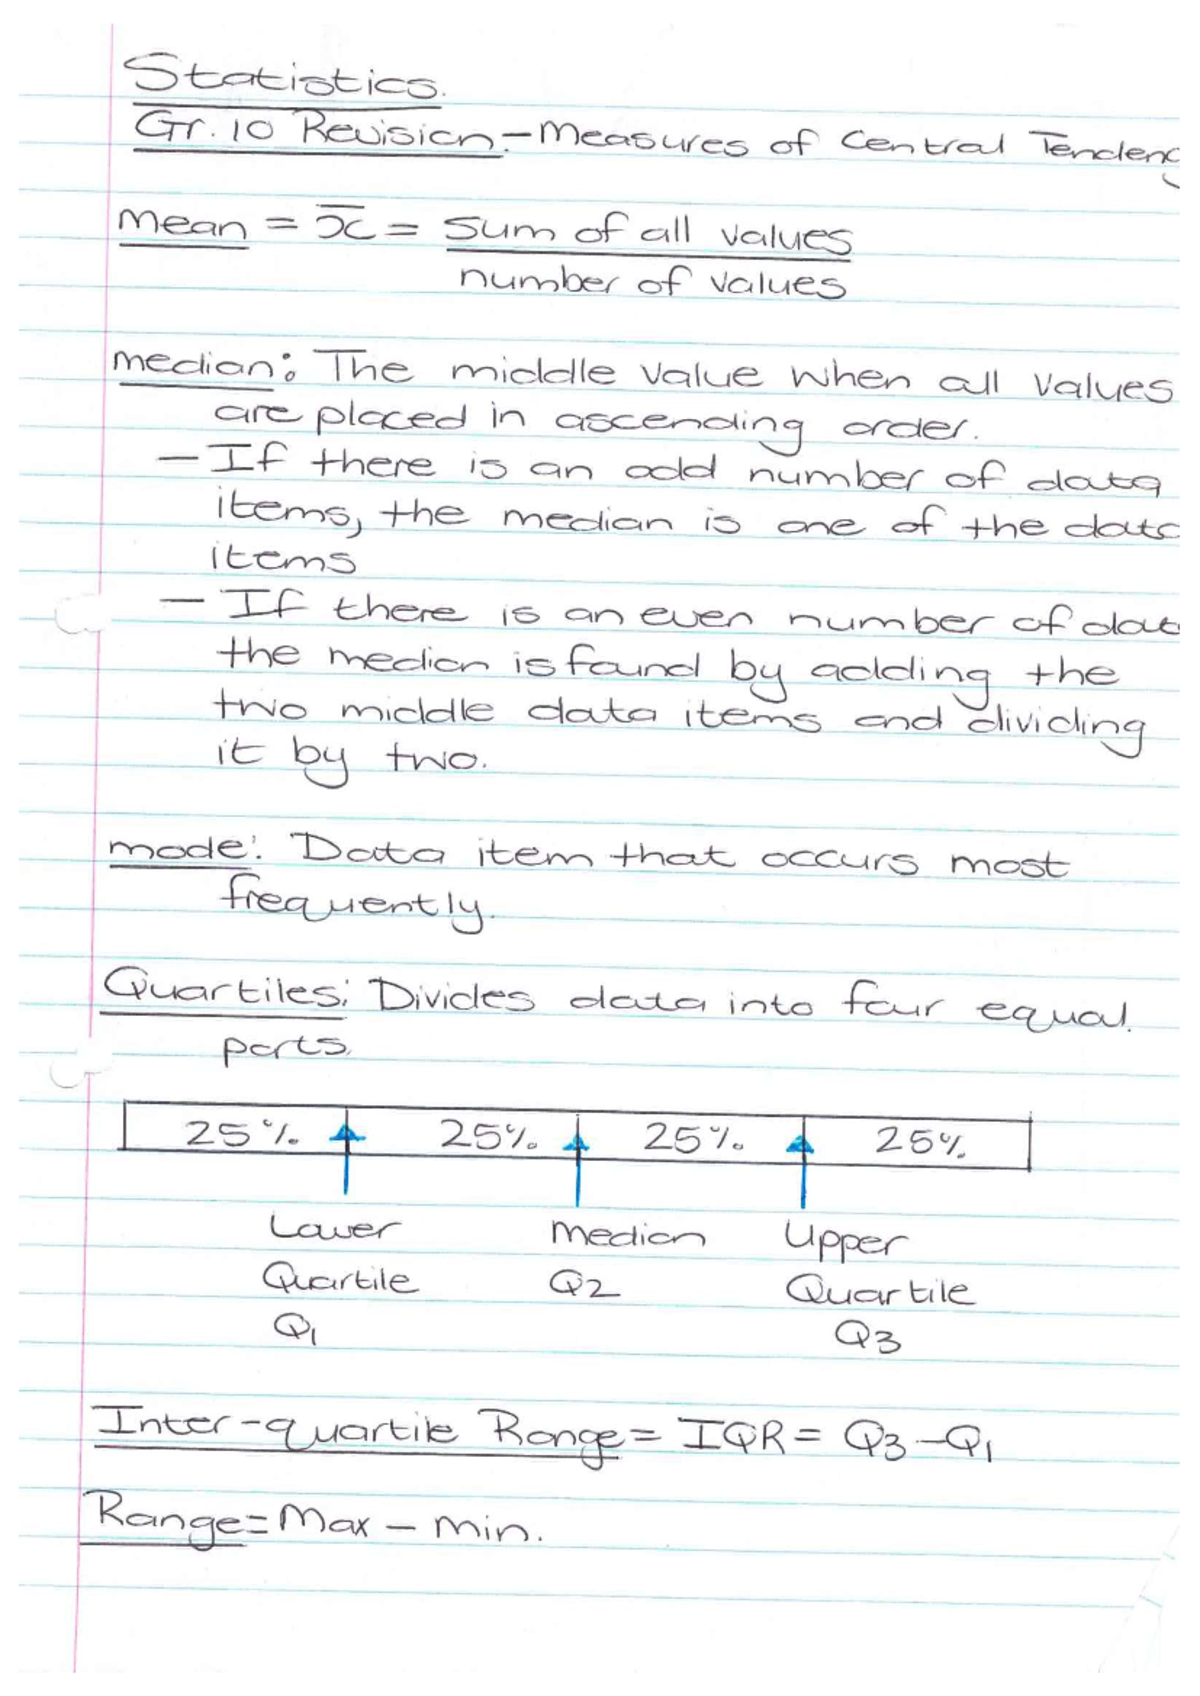 Statistics.
Gr. 10 Revision. - Measures of Central Tendency
mean = x̄ = sum of all values
number of values
median: The middle value when all values
are placed in ascending order.
- If there is an odd number of data
items, the median is one of the data
items
- If there is an even number of dat
the median is found by adding the
two middle data items and dividing
it by two.
mode: Data item that occurs most
frequently.
Quartiles: Divides data into four equal.
parts.
25% 25% 25% 25%
Lower Median Upper
Quartile Q2 Quartile
Q1 Q3
Inter-quartile Range = IQR = Q3 - Q1
Range = Max - Min.